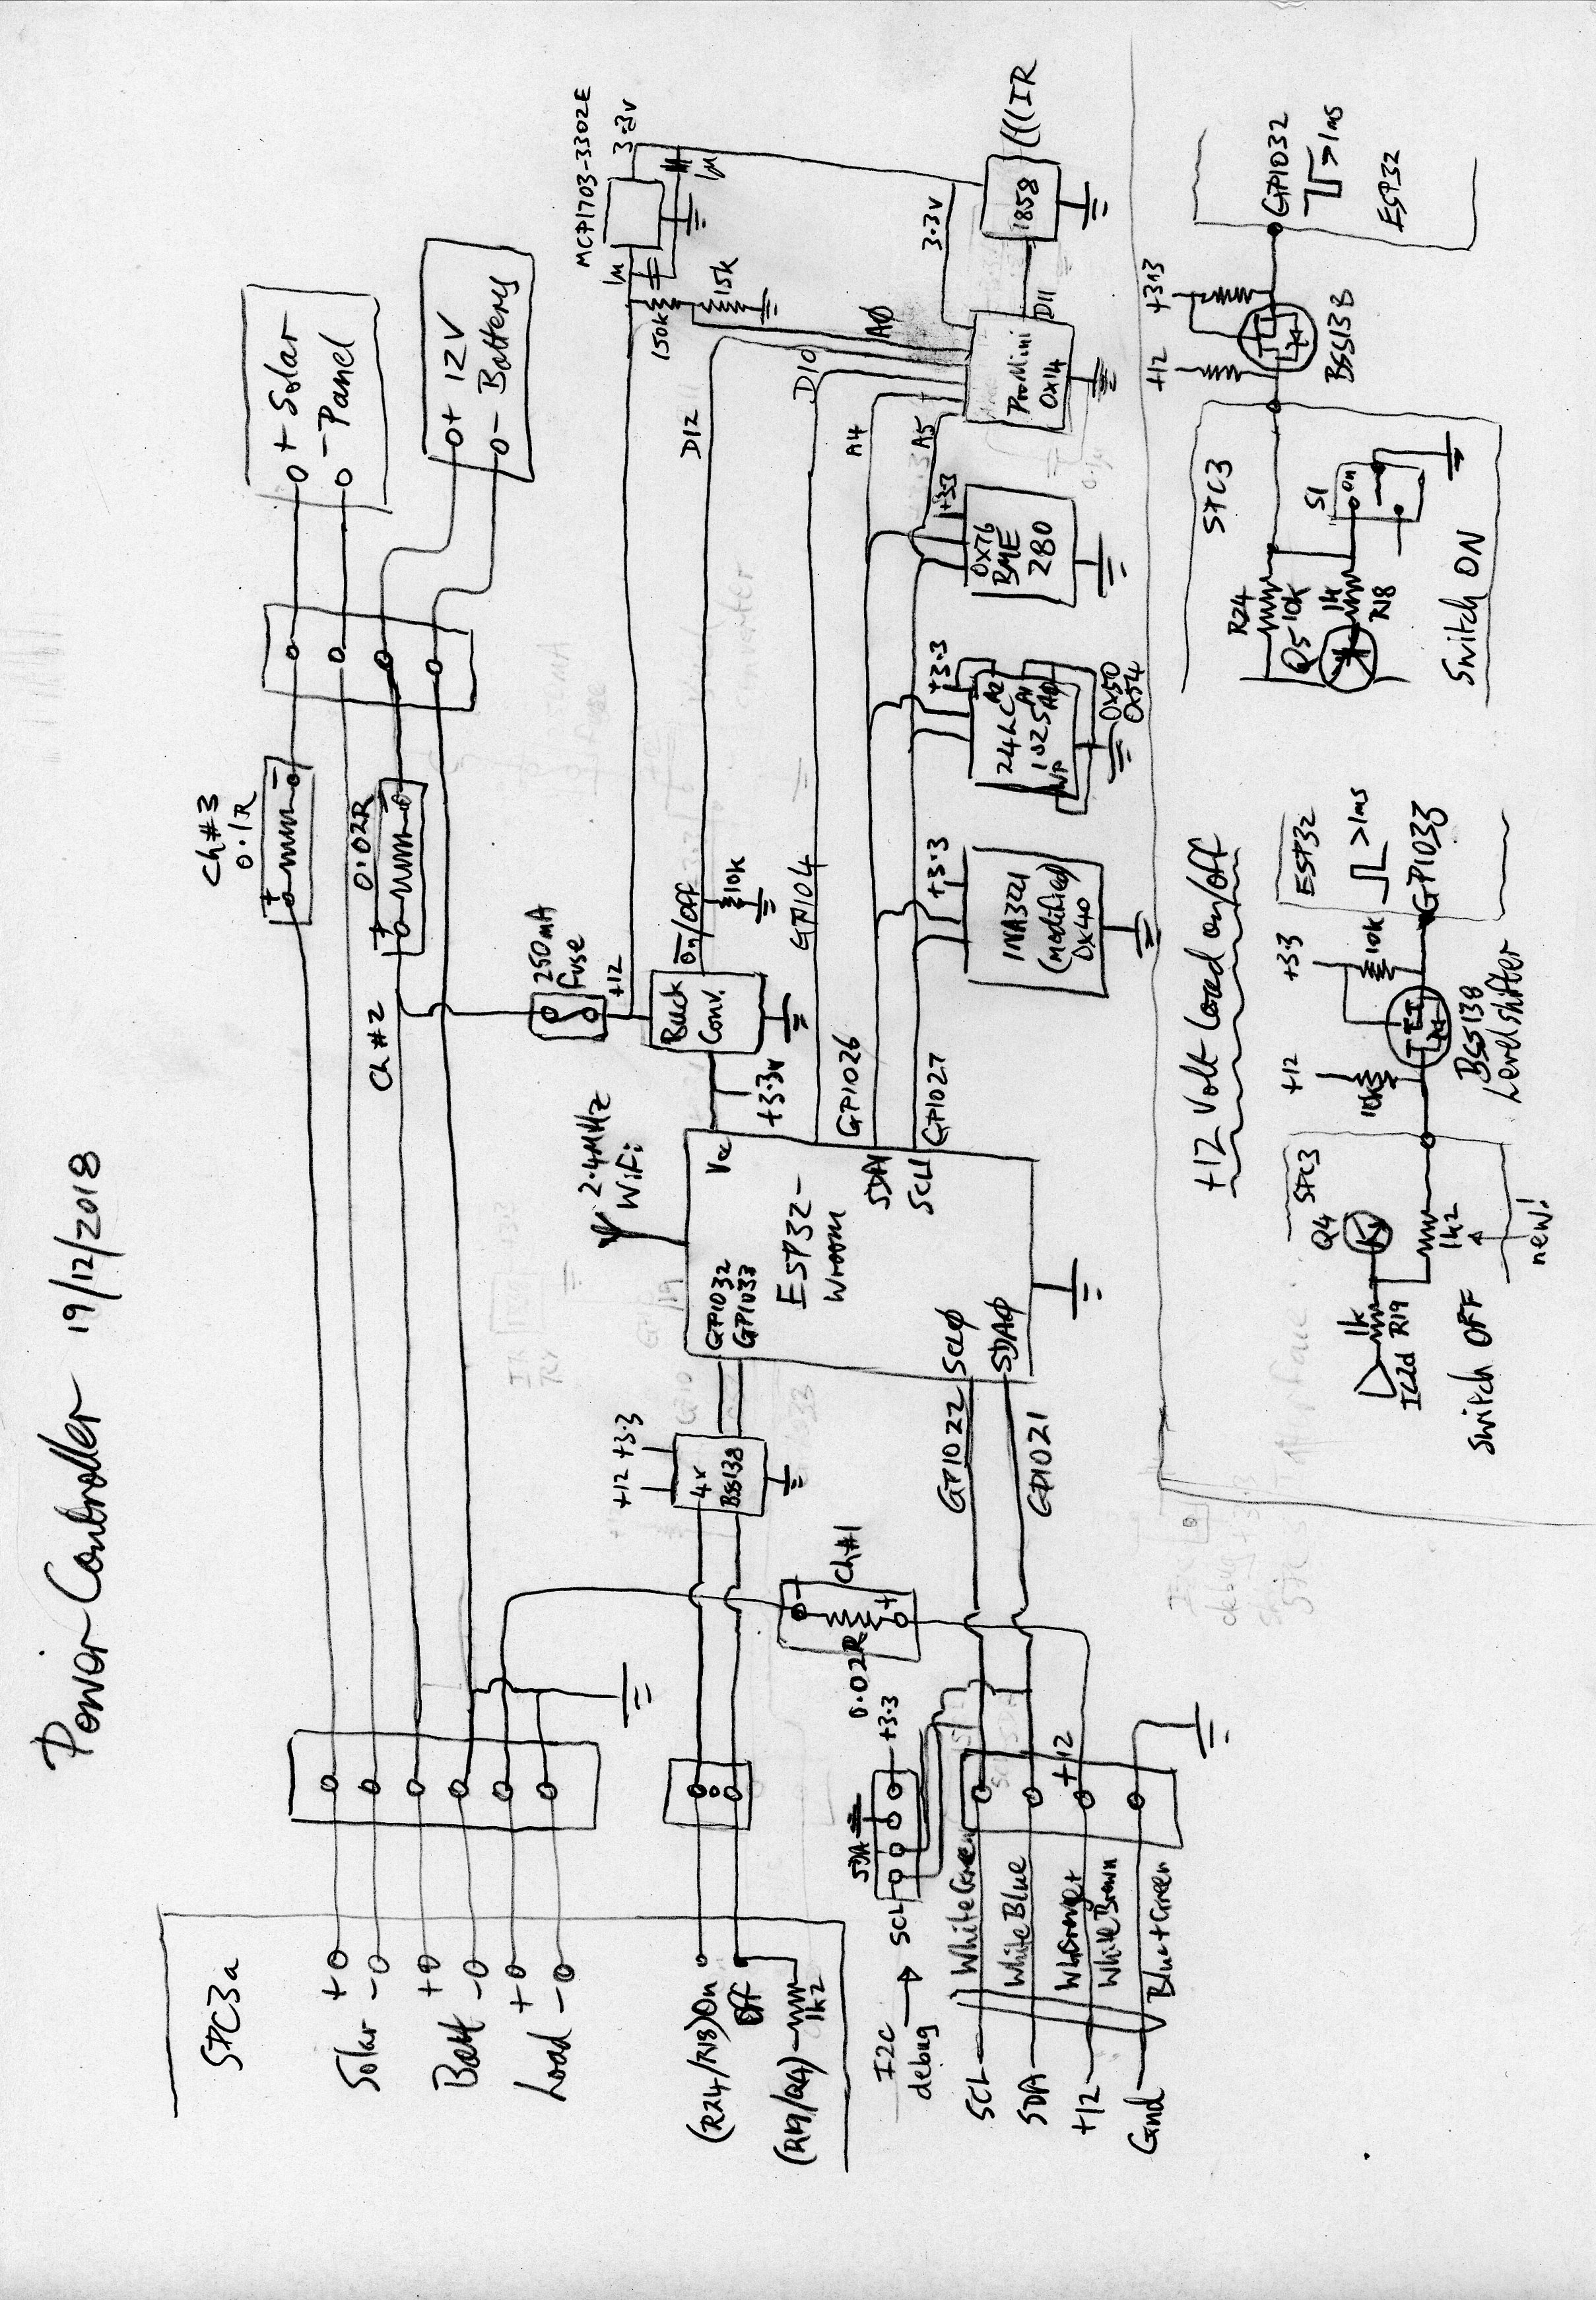 Power Controller 19/12/2018
SPC3a
Solar +
-
Batt +
-
Load +
-
(R24/R18) On
Off
(R19/Q4)
1k2
I2C
debug
SCL
SDA
+3.3
SCL
SDA
+12
Gnd
White Green
White Blue
White Brown
Blue + Green
+12
Ch#3
0.1R
+ -
Ch#2
0.02R
+ -
Ch#1
0.02R
- +
+ Solar
- Panel
+ 12V
- Battery
250mA
fuse
+12
Buck
Conv.
On/Off
10k
+3.3v
+12 +3.3
4x
BSS138
2.4MHz
WiFi
Vcc
GPIO32
GPIO33
ESP32-
Wroom
SDA1
SCL1
SCL0
SDA0
GPIO22
GPIO21
GPIO4
GPIO26
GPIO27
MCP1703-3302E
3.3v
1µ
1µ
150k
15k
D12
D10
A0
A4
A5
3.3v
D11
ProMini
0x14
1858
IR
+3.3
INA3221
(modified)
0x40
+3.3
24LC
1025
A2
A1
A0
WP
0x50
0x54
+3.3
0x76
BME
280
+12 Volt Load on/off
SPC3
Q4
1k
R19
IC2d
1k2
new!
Switch OFF
+12
10k
+3.3
10k
BSS138
Level shifter
ESP32
>1ms
GPIO33
SPC3
R24
10k
Q5
1k
R18
S1
on
Switch ON
+12
+3.3
BSS138
GPIO32
>1ms
ESP32